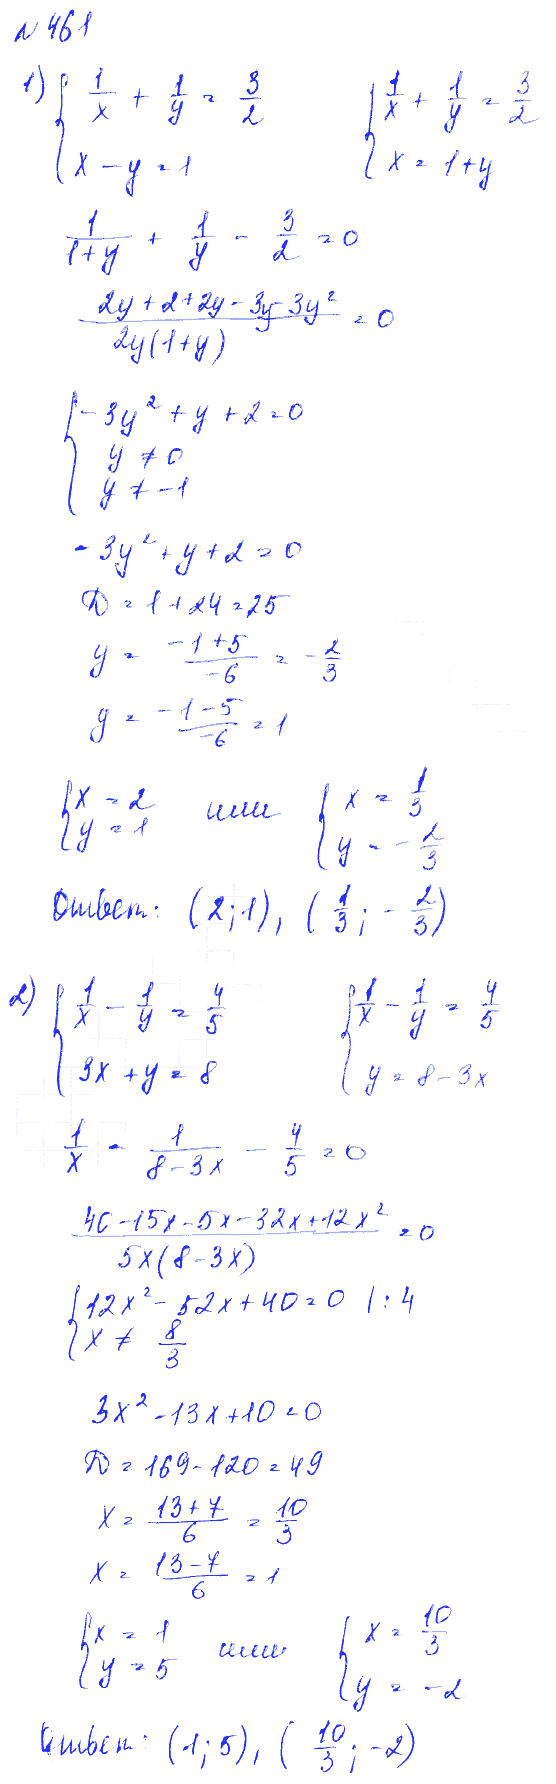 № 461
1) { 1/x + 1/y = 3/2    { 1/x + 1/y = 3/2
x - y = 1    x = 1 + y
1/(1+y) + 1/y - 3/2 = 0
(2y + 2 + 2y - 3y - 3y²)/(2y(1+y)) = 0
{ -3y² + y + 2 = 0
y ≠ 0
y ≠ -1
-3y² + y + 2 = 0
D = 1 + 24 = 25
y = (-1+5)/(-6) = -2/3
y = (-1-5)/(-6) = 1
{ x = 2    или    { x = 1/3
y = 1    y = -2/3
Ответ: (2; 1), (1/3; -2/3)
2) { 1/x - 1/y = 4/5    { 1/x - 1/y = 4/5
3x + y = 8    y = 8 - 3x
1/x - 1/(8-3x) - 4/5 = 0
(40 - 15x - 5x - 32x + 12x²)/(5x(8-3x)) = 0
{ 12x² - 52x + 40 = 0 | : 4
x ≠ 8/3
3x² - 13x + 10 = 0
D = 169 - 120 = 49
x = (13+7)/6 = 10/3
x = (13-7)/6 = 1
{ x = 1    или    { x = 10/3
y = 5    y = -2
Ответ: (1; 5), (10/3; -2)